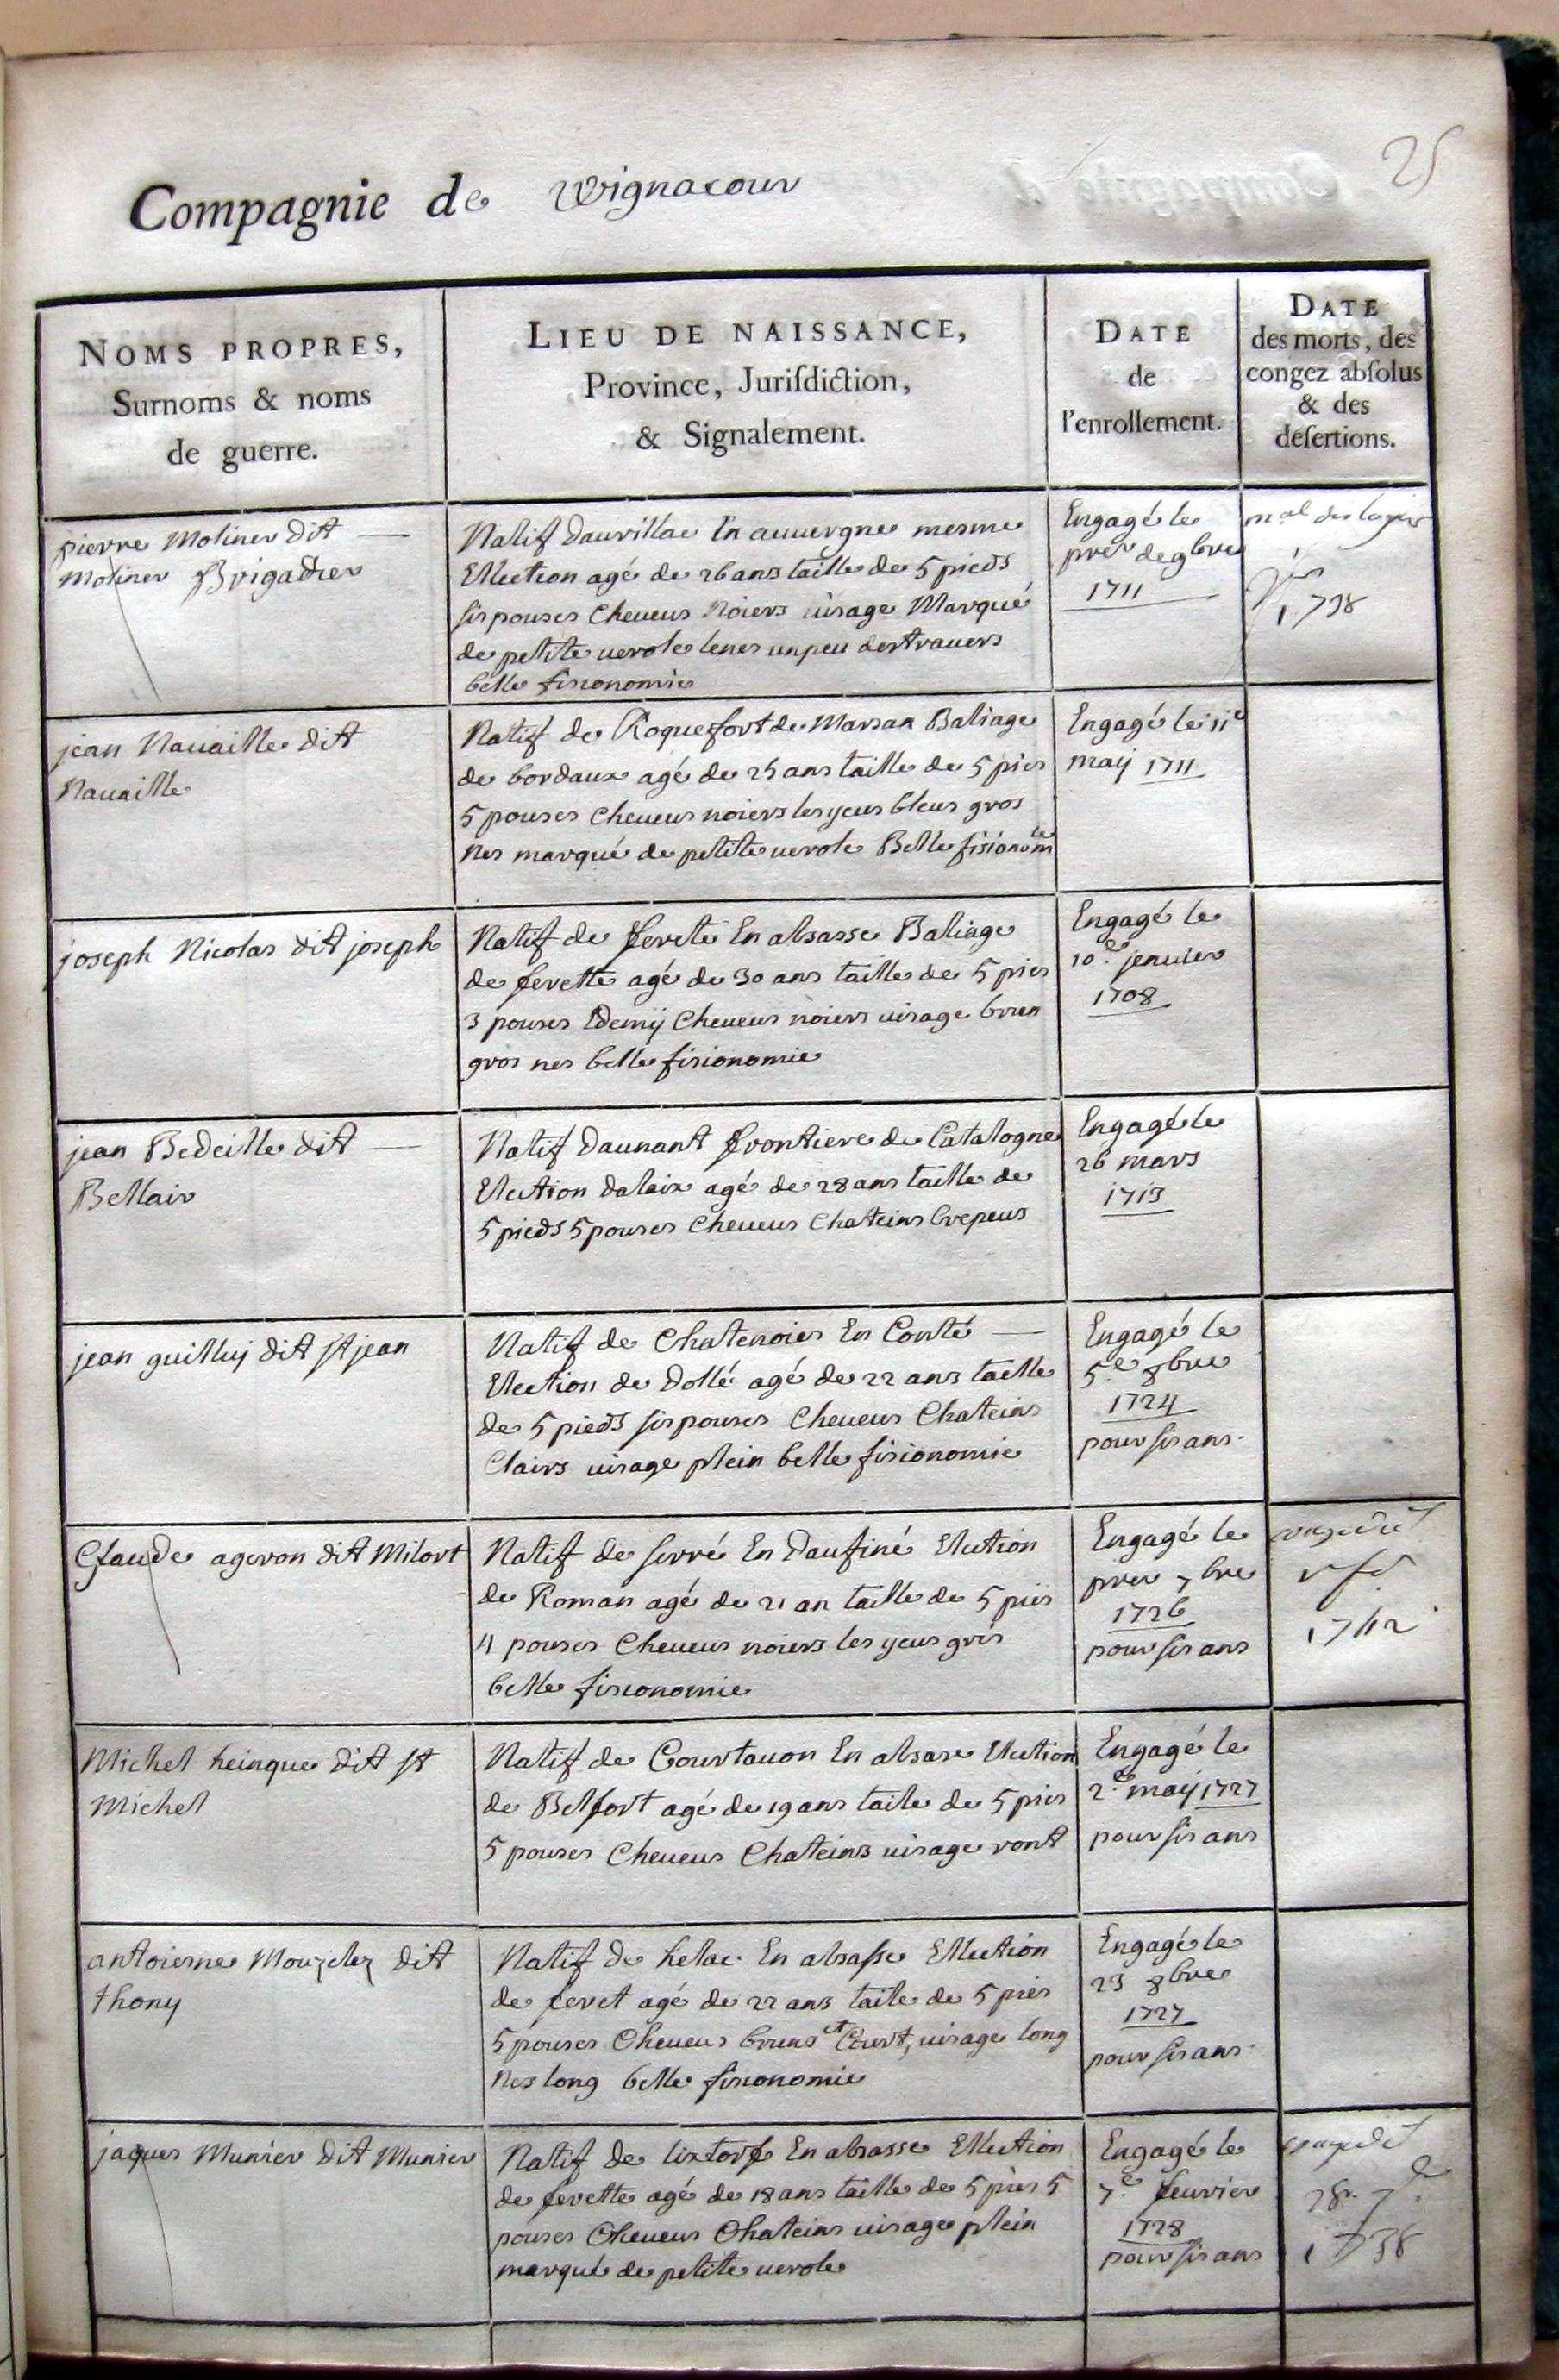 25
Compagnie de Wignacour
NOMS PROPRES,
Surnoms & noms
de guerre.
LIEU DE NAISSANCE,
Province, Jurisdiction,
& Signalement.
DATE
de
l'enrollement.
DATE
des morts, des
congez absolus
& des
désertions.
pierre Moliner dit
Moliner Brigadier
Natif daurillac En auuergne mesme
Ellection agé de 26 ans taille de 5 pieds
sis pouses Cheueus Noiers uisage Marqué
de petite uerole lenes un peu destrauers
belle fisionomie
Engagé le
prer de 9bre
1711
mal des logis
1738
jean Nauaille dit
Nauaille
Natif de Roquefort de Marsan Baliage
de bordaux agé de 25 ans taille de 5 pies
5 pouses Cheueus noiers les yeus bleus gros
Nes marqué de petite uerole Belle fisionomie
Engagé le 11e
maij 1711
joseph Nicolas dit joseph
Natif de ferete En alsasse Baliage
de ferette agé de 30 ans taille de 5 pies
3 pouses Edemij Cheueus noiers uisage brun
gros nes belle fisionomie
Engagé le
10e jenuier
1708
jean Bedeille dit
Bellair
Natif daunant frontiere de Catalogne
Election dalaix agé de 28 ans taille de
5 pieds 5 pouses Cheueus Chateins Crepeus
Engagé le
26 mars
1713
jean guilluj dit st jean
Natif de Chatenoies En Conté
Election de Dollé agé de 22 ans taille
de 5 pieds sis pouses Cheueus Chateins
Clairs uisage plein belle fisionomie
Engagé le
5e 8bre
1724
pour sis ans
Claude ageron dit Milort
Natif de serré En Daufiné Election
de Roman agé de 21 an taille de 5 pies
4 pouses Cheueus noiers les yeus gris
belle fisionomie
Engagé le
prer 7bre
1726
pour sis ans
congedié
1742
Michel heinque dit st
Michel
Natif de Courtauon En alsase Election
de Belfort agé de 19 ans taile de 5 pies
5 pouses Cheueus Chateins uisage ront
Engagé le
2e maij 1727
pour sis ans
antoiene Mouzelez dit
thony
Natif de helac En alsasse Ellection
de feret agé de 22 ans taile de 5 pies
5 pouses Cheueus bruns et Court, uisage long
Nes long belle fisionomie
Engagé le
23 8bre
1727
pour sis ans
jaques Munier dit Munier
Natif de lixtorf En alsasse Ellection
de ferette agé de 18 ans taille de 5 pies 5
pouses Cheueus Chateins uisage plein
marqué de petite uerole
Engagé le
7e feurier
1728
pour sis ans
congedié
1738